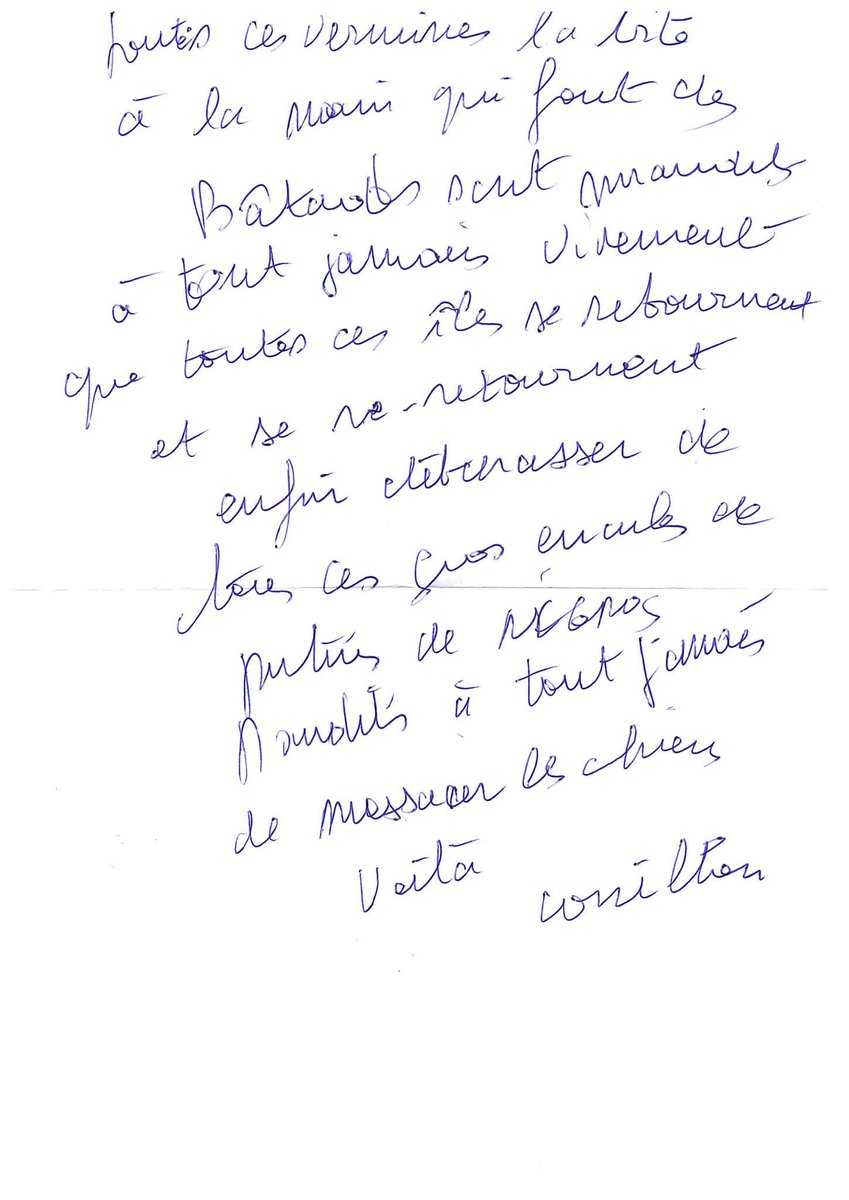 toutes ces vermines la bite
à la main qui font des
Bâtards sont maudits
à tout jamais vivement
que toutes ces îles se retournent
et se re-retournent
enfin débarrasser de
tous ces gros enculés de
putins de NÉGROS
maudits à tout jamais
de massacrer les chiens
Voilà